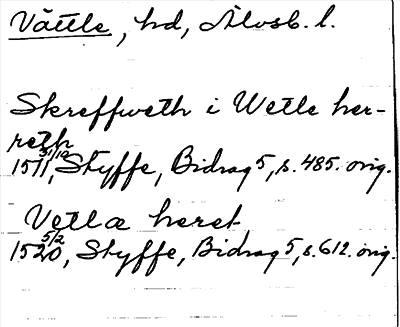 Vättle, hd, Älvsb. l.
Skreffweth i Wetle her-
reth
1511 31/12, Styffe, Bidrag 5, s. 485. orig.
Vetlæ heret
1520 5/2, Styffe, Bidrag 5, s. 612. orig.